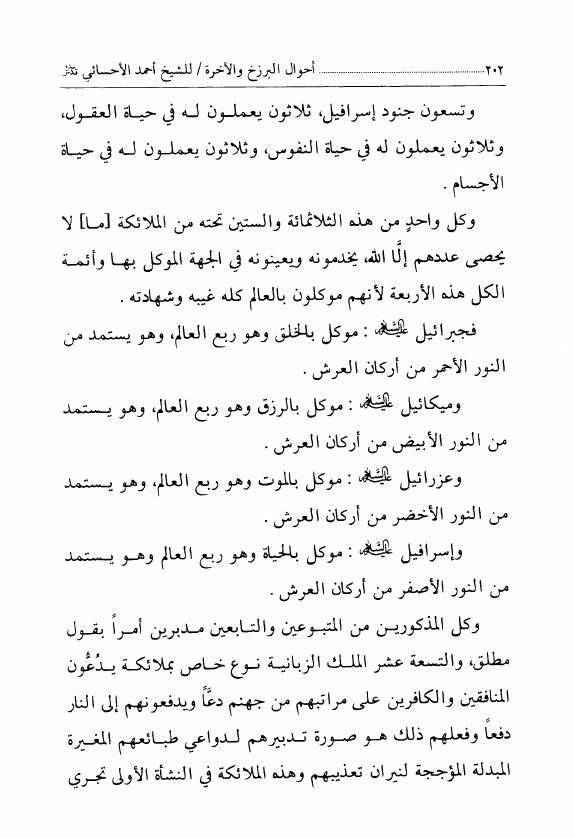 ٢٠٢ ........................ أحوال البرزخ والآخرة / للشيخ أحمد الأحسائي
وتسعون جنود إسرافيل، ثلاثون يعملون له في حياة العقول،
وثلاثون يعملون له في حياة النفوس، وثلاثون يعملون له في حياة
الأجسام .
وكل واحدٍ من هذه الثلاثمائة والستين تحته من الملائكة [ما] لا
يحصى عددهم إلَّا الله، يخدمونه ويعينونه في الجهة الموكل بها وأئمة
الكل هذه الأربعة لأنهم موكلون بالعالم كله غيبه وشهادته .
فجبرائيل عليه السلام : موكل بالخلق وهو ربع العالم، وهو يستمد من
النور الأحمر من أركان العرش .
وميكائيل عليه السلام : موكل بالرزق وهو ربع العالم، وهو يستمد
من النور الأبيض من أركان العرش .
وعزرائيل عليه السلام : موكل بالموت وهو ربع العالم، وهو يستمد
من النور الأخضر من أركان العرش .
وإسرافيل عليه السلام : موكل بالحياة وهو ربع العالم وهو يستمد
من النور الأصفر من أركان العرش .
وكل المذكورين من المتبوعين والتابعين مدبرين أمراً بقول
مطلق، والتسعة عشر الملك الزبانية نوع خاص بملائكة يدُعُّون
المنافقين والكافرين على مراتبهم من جهنم دعًّا ويدفعونهم إلى النار
دفعاً وفعلهم ذلك هو صورة تدبيرهم لدواعي طبائعهم المغيرة
المبدلة المؤججة لنيران تعذيبهم وهذه الملائكة في النشأة الأولى تجري